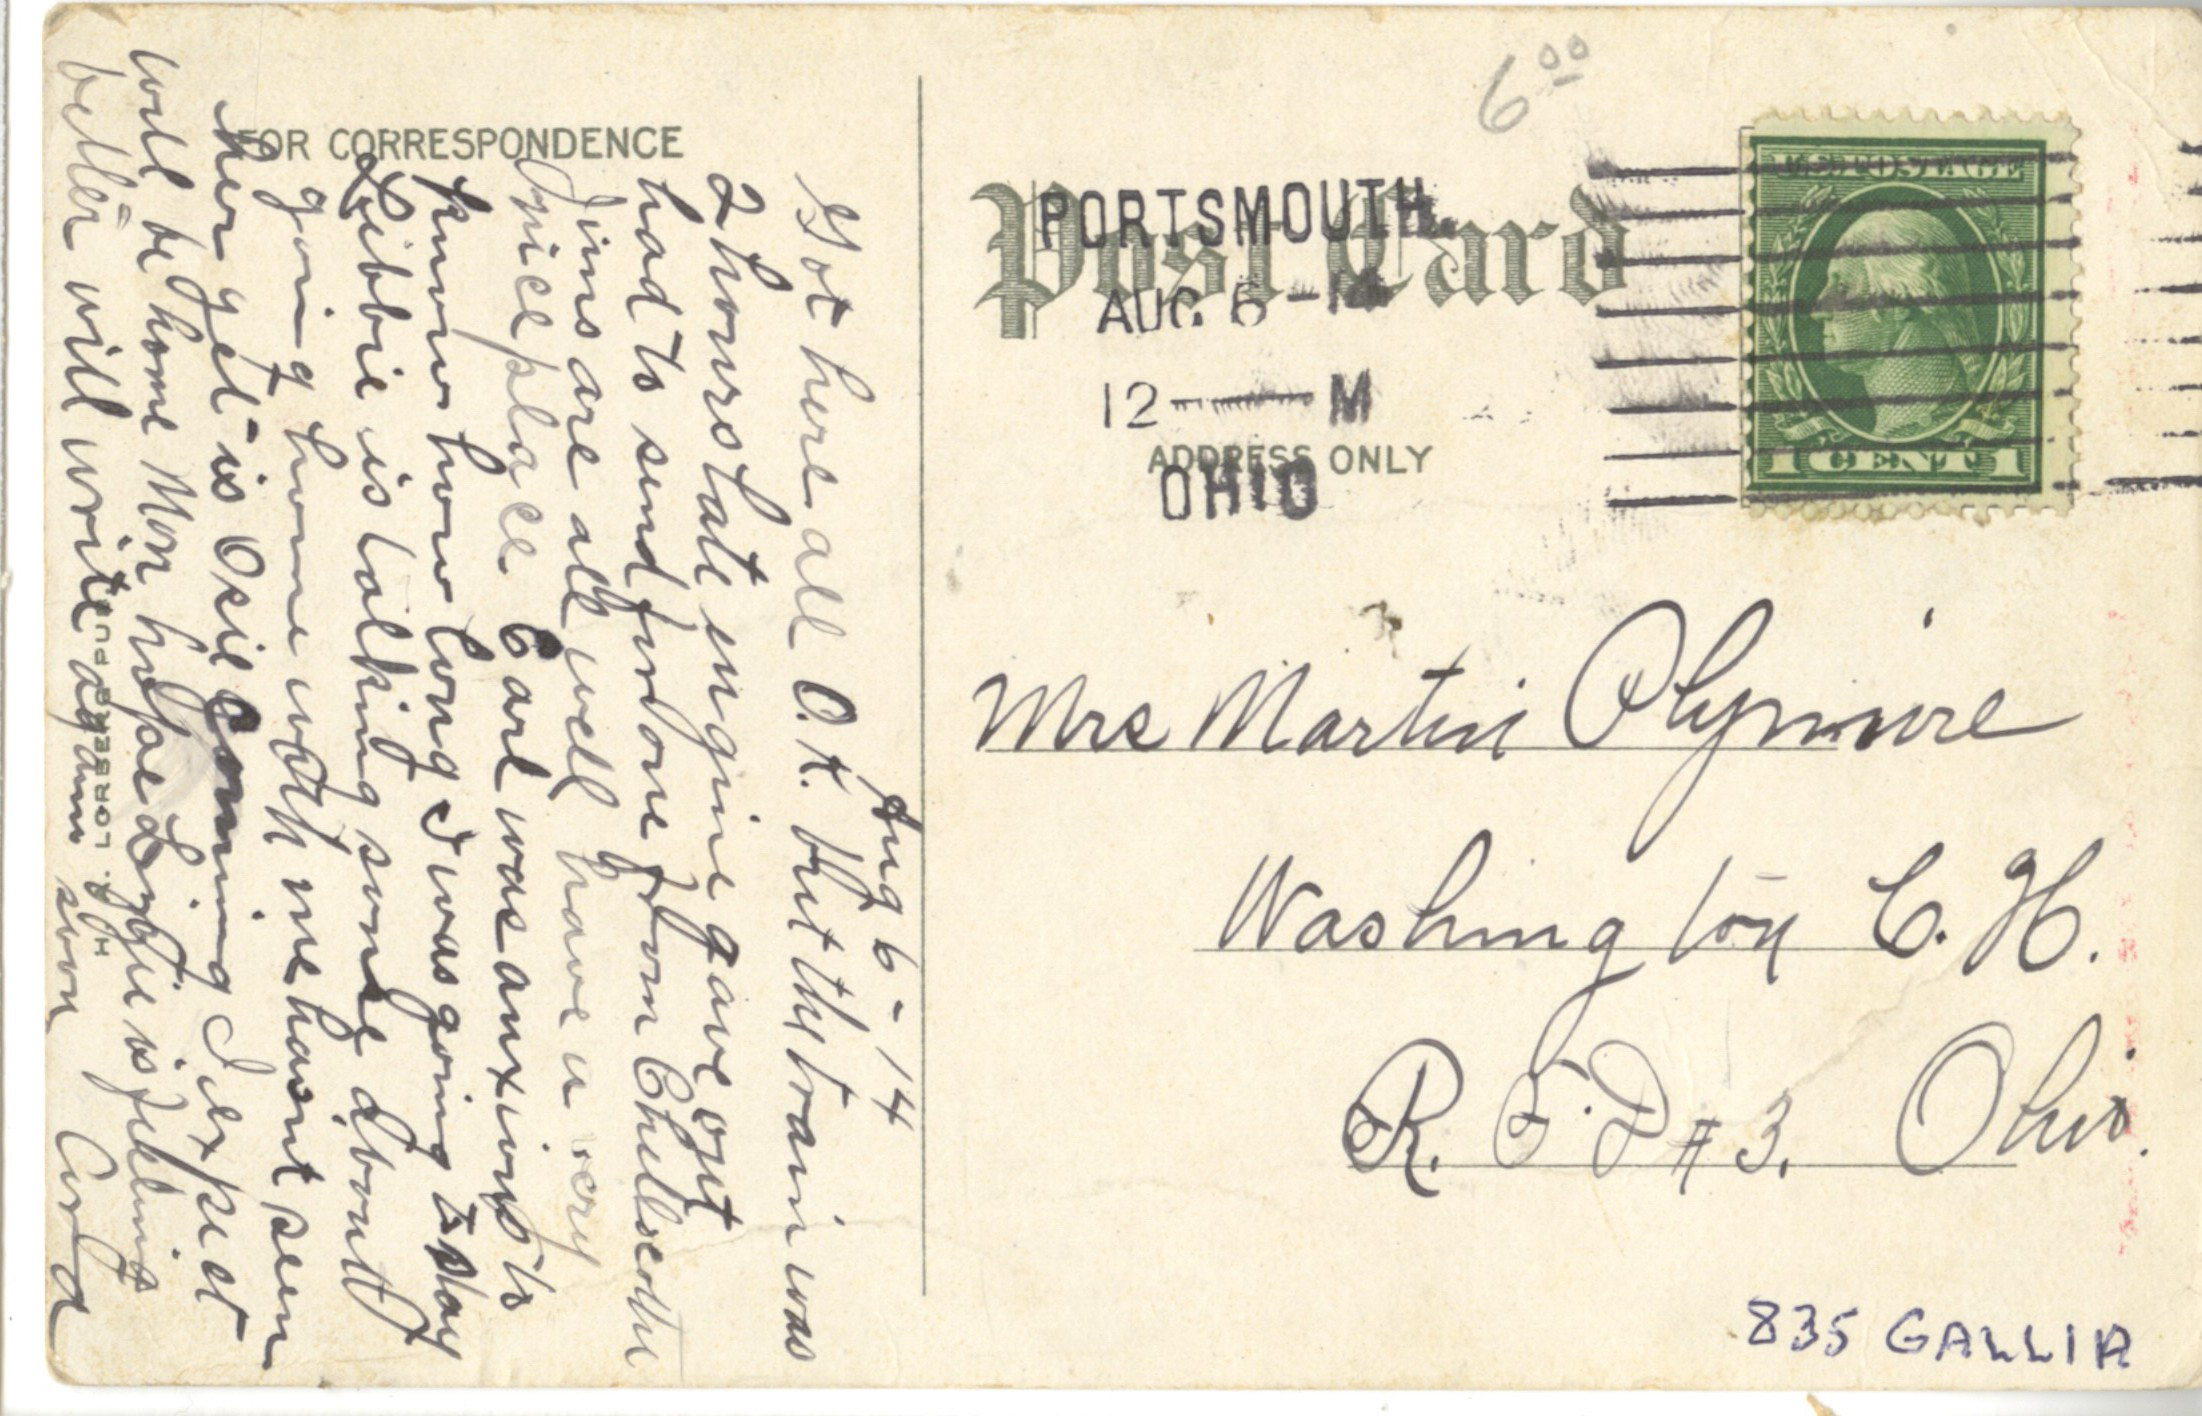 FOR CORRESPONDENCE
Aug 6 - 14
Got here all O.K. but the train was
2 hours late engine gave out
had to send for one from Chillicothe
Jims are all well have a very
nice place Earl was anxious to
know how long I was going to stay
Libbie is talking some about
going home with me havent seen
her yet is Osie coming I expect
will be home Mon hope Lizzie is feeling
better will write again soon Cora
PUB. BY H. A. LORBERG
Post Card
PORTSMOUTH,
AUG 6 - 14
12 M
OHIO
ADDRESS ONLY
6 00
U.S. POSTAGE
1 CENT 1
Mrs Martin Plymire
Washington C. H.
R. F. D #3. Ohio.
835 GALLIA